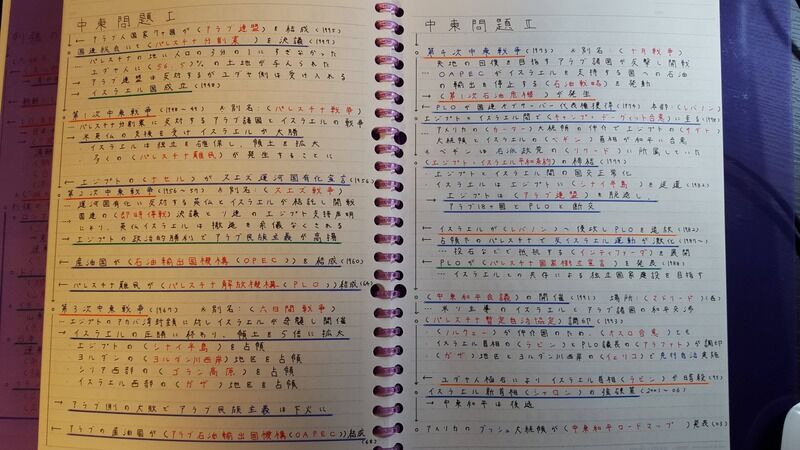 中東問題 I
← アラブ人国家7ヶ国が(アラブ連盟)を結成(1945)
国連総会にて(パレスチナ分割案)を決議(1947)
パレスチナの地に人口の3分の1にすぎなかった
ユダヤ人に(56.5)%の土地が与えられた
アラブ連盟は反対するがユダヤ側は受け入れる
→ イスラエル国成立(1948)
第1次中東戦争(1948~49) ※別名:(パレスチナ戦争)
パレスチナ分割案に反対するアラブ諸国とイスラエルの戦争
→ 米英仏の支援を受けイスラエルが大勝
イスラエルは独立を確保し、領土を拡大
多くの(パレスチナ難民)が発生することに
← エジプトの(ナセル)がスエズ運河国有化宣言(1956)
第2次中東戦争(1956~57) ※別名:(スエズ戦争)
運河国有化に反対する英仏とイスラエルが結託し開戦
国連の(即時停戦)決議とソ連のエジプト支持声明
により、英仏イスラエルは撤退を余儀なくされる
→ エジプトの政治的勝利でアラブ民族主義が高揚
← 産油国が(石油輸出国機構(OPEC))を結成(1960)
← パレスチナが(パレスチナ解放機構(PLO))結成(64)
第3次中東戦争(1967) ※別名:(六日間戦争)
エジプトのアカバ湾封鎖に対しイスラエルが奇襲し開催
→ イスラエルの圧勝に終わり、領土を5倍に拡大
エジプトの(シナイ半島)を占領
ヨルダンの(ヨルダン川西岸)地区を占領
シリア西部の(ゴラン高原)を占領
イスラエル西部の(ガザ)地区を占領
→ アラブ側の大敗でアラブ民族主義は下火に
← アラブの産油国が(アラブ石油輸出国機構(OAPEC))結成(68)
中東問題 II
第4次中東戦争(1973) ※別名:(十月戦争)
失地の回復を目指すアラブ諸国が反撃し開戦
OAPECがイスラエルを支持する国への石油
の輸出を停止する(石油戦略)を発動
→ (第1次石油危機)が発生
← PLOが国連オブザーバー代表権獲得(1974) 本部:(レバノン)
エジプト=イスラエル間で(キャンプ・デーヴィッド合意)に至る(1978)
アメリカの(カーター)大統領の仲介でエジプトの(サダト)
大統領とイスラエルの(ベギン)首相が和平に合意
※ベギンは右派政党の(リクード)に所属していた
(エジプト・イスラエル平和条約)の締結(1979)
エジプトとイスラエル間の国交正常化
イスラエルはエジプトに(シナイ半島)を返還(1982)
→ エジプトは(アラブ連盟)を脱退し、
アラブ18ヶ国とPLOと断交
← イスラエルが(レバノン)へ侵攻しPLOを追放(1982)
← 占領下のパレスチナで反イスラエル運動が激化(1987~)
…投石などで抵抗する(インティファーダ)を展開
← PLOが(パレスチナ国家樹立宣言)を発表(1988)
…イスラエルとの共存による独立国家建設を目指す
(中東和平会議)の開催(1991) 場所:(マドリード)(西)
…米ソ主導のイスラエルとアラブ諸国の和平交渉
(パレスチナ暫定自治協定)調印(1993)
(ノルウェー)が仲介国のため、(オスロ合意)とも
イスラエル首相の(ラビン)とPLO議長の(アラファト)が調印
(ガザ)地区とヨルダン川西岸の(イェリコ)で先行自治実施
← ユダヤ人極右によりイスラエル首相(ラビン)が暗殺(95)
イスラエル新首相(シャロン)の強硬策(2001~06)
→ 中東和平は後退
アメリカのブッシュ大統領が(中東和平ロードマップ)発表(03)